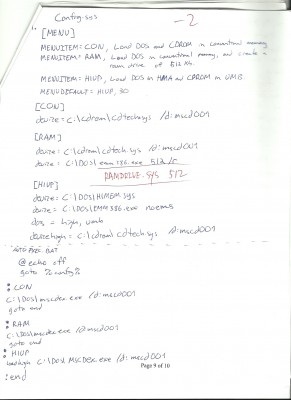 Config.sys
-2
[MENU]
MENUITEM: CON, Load DOS and CDROM in conventional memory
MENUITEM: RAM, Load DOS in conventional memory, and create a
ram drive of 512 Kb.
MENUITEM: HIUP, Load DOS in HMA and CDROM in UMB.
MENUDEFAULT: HIUP, 30
[CON]
device: C:\cdrom\cdtechsys /d:mscd001
[RAM]
device: c:\cdrom\cdtech.sys /d:mscd001
device: C:\DOS\emm386.exe 512 /c
RAMDRIVE.SYS 512
[HIUP]
device: C:\DOS\HIMEM.sys
device: C:\DOS\EMM386.exe noems
dos = high, umb
devicehigh: c:\cdrom\cdtech.sys /d:mscd001
AUTO EXEC.BAT
@echo off
goto %config%
: CON
C:\DOS\mscdex.exe /d:mscd001
goto end
: RAM
C:\DOS\mscdex.exe /d:mscd001
goto end
: HIUP
loadhigh C:\DOS\MSCDEX.exe /d:mscd001
:end
Page 9 of 10